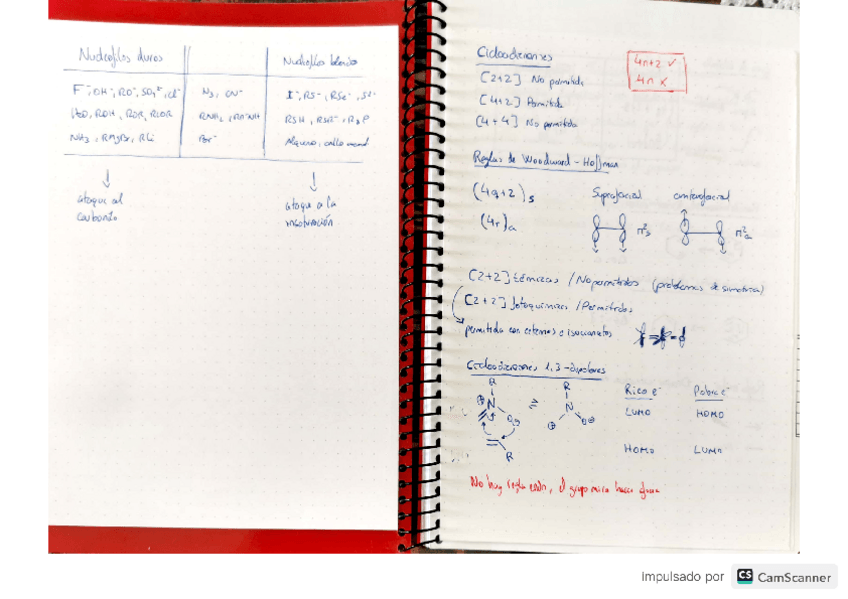 Nucleofilos duros
Nucleofilos blandos
F⁻, OH⁻, RO⁻, SO₄²⁻, Cl⁻
N₃, CN⁻
I⁻, RS⁻, RSe⁻, S²⁻
H₂O, ROH, ROR,
RNH₂,
RSH, R₃P
NH₃, RMgBr, RLi
Br⁻
Alqueno,
↓
↓
ataque al
carbonilo
ataque a la
insaturación
Cicloadiciones
4n+2 ✓
4n ✗
[2+2] No permitida
[4+2] Permitida
[4+4] No permitida
Reglas de Woodward-Hoffman
(4q+2)s
(4r)a
Suprafacial
antarafacial
π²s
π²a
[2+2] térmicas / No permitidas (problemas de simetría)
[2+2] fotoquímicas / Permitidas
permitida con cetenas e isocianatos
Cicloadiciones 1,3-dipolares
R
N
R
R
N
Rico e⁻
Pobre e⁻
LUMO
HOMO
HOMO
LUMO
No hay regla endo, el grupo mira hacia fuera
Impulsado por CS CamScanner